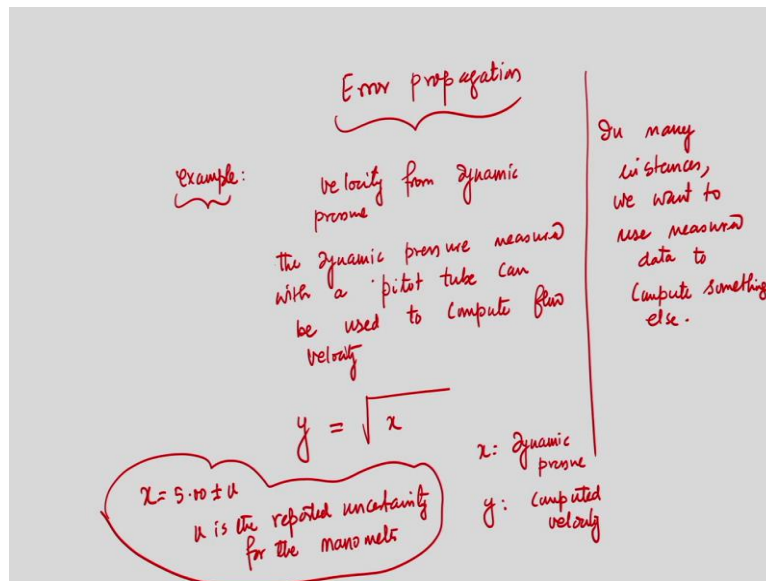 Error propagation
example:
velocity from dynamic
pressure
the dynamic pressure measured
with a pitot tube can
be used to compute flow
velocity
y = √x
x = 5.00 ± u
u is the reported uncertainty
for the manometer
x: dynamic
pressure
y: computed
velocity
In many
instances,
we want to
use measured
data to
compute something
else.